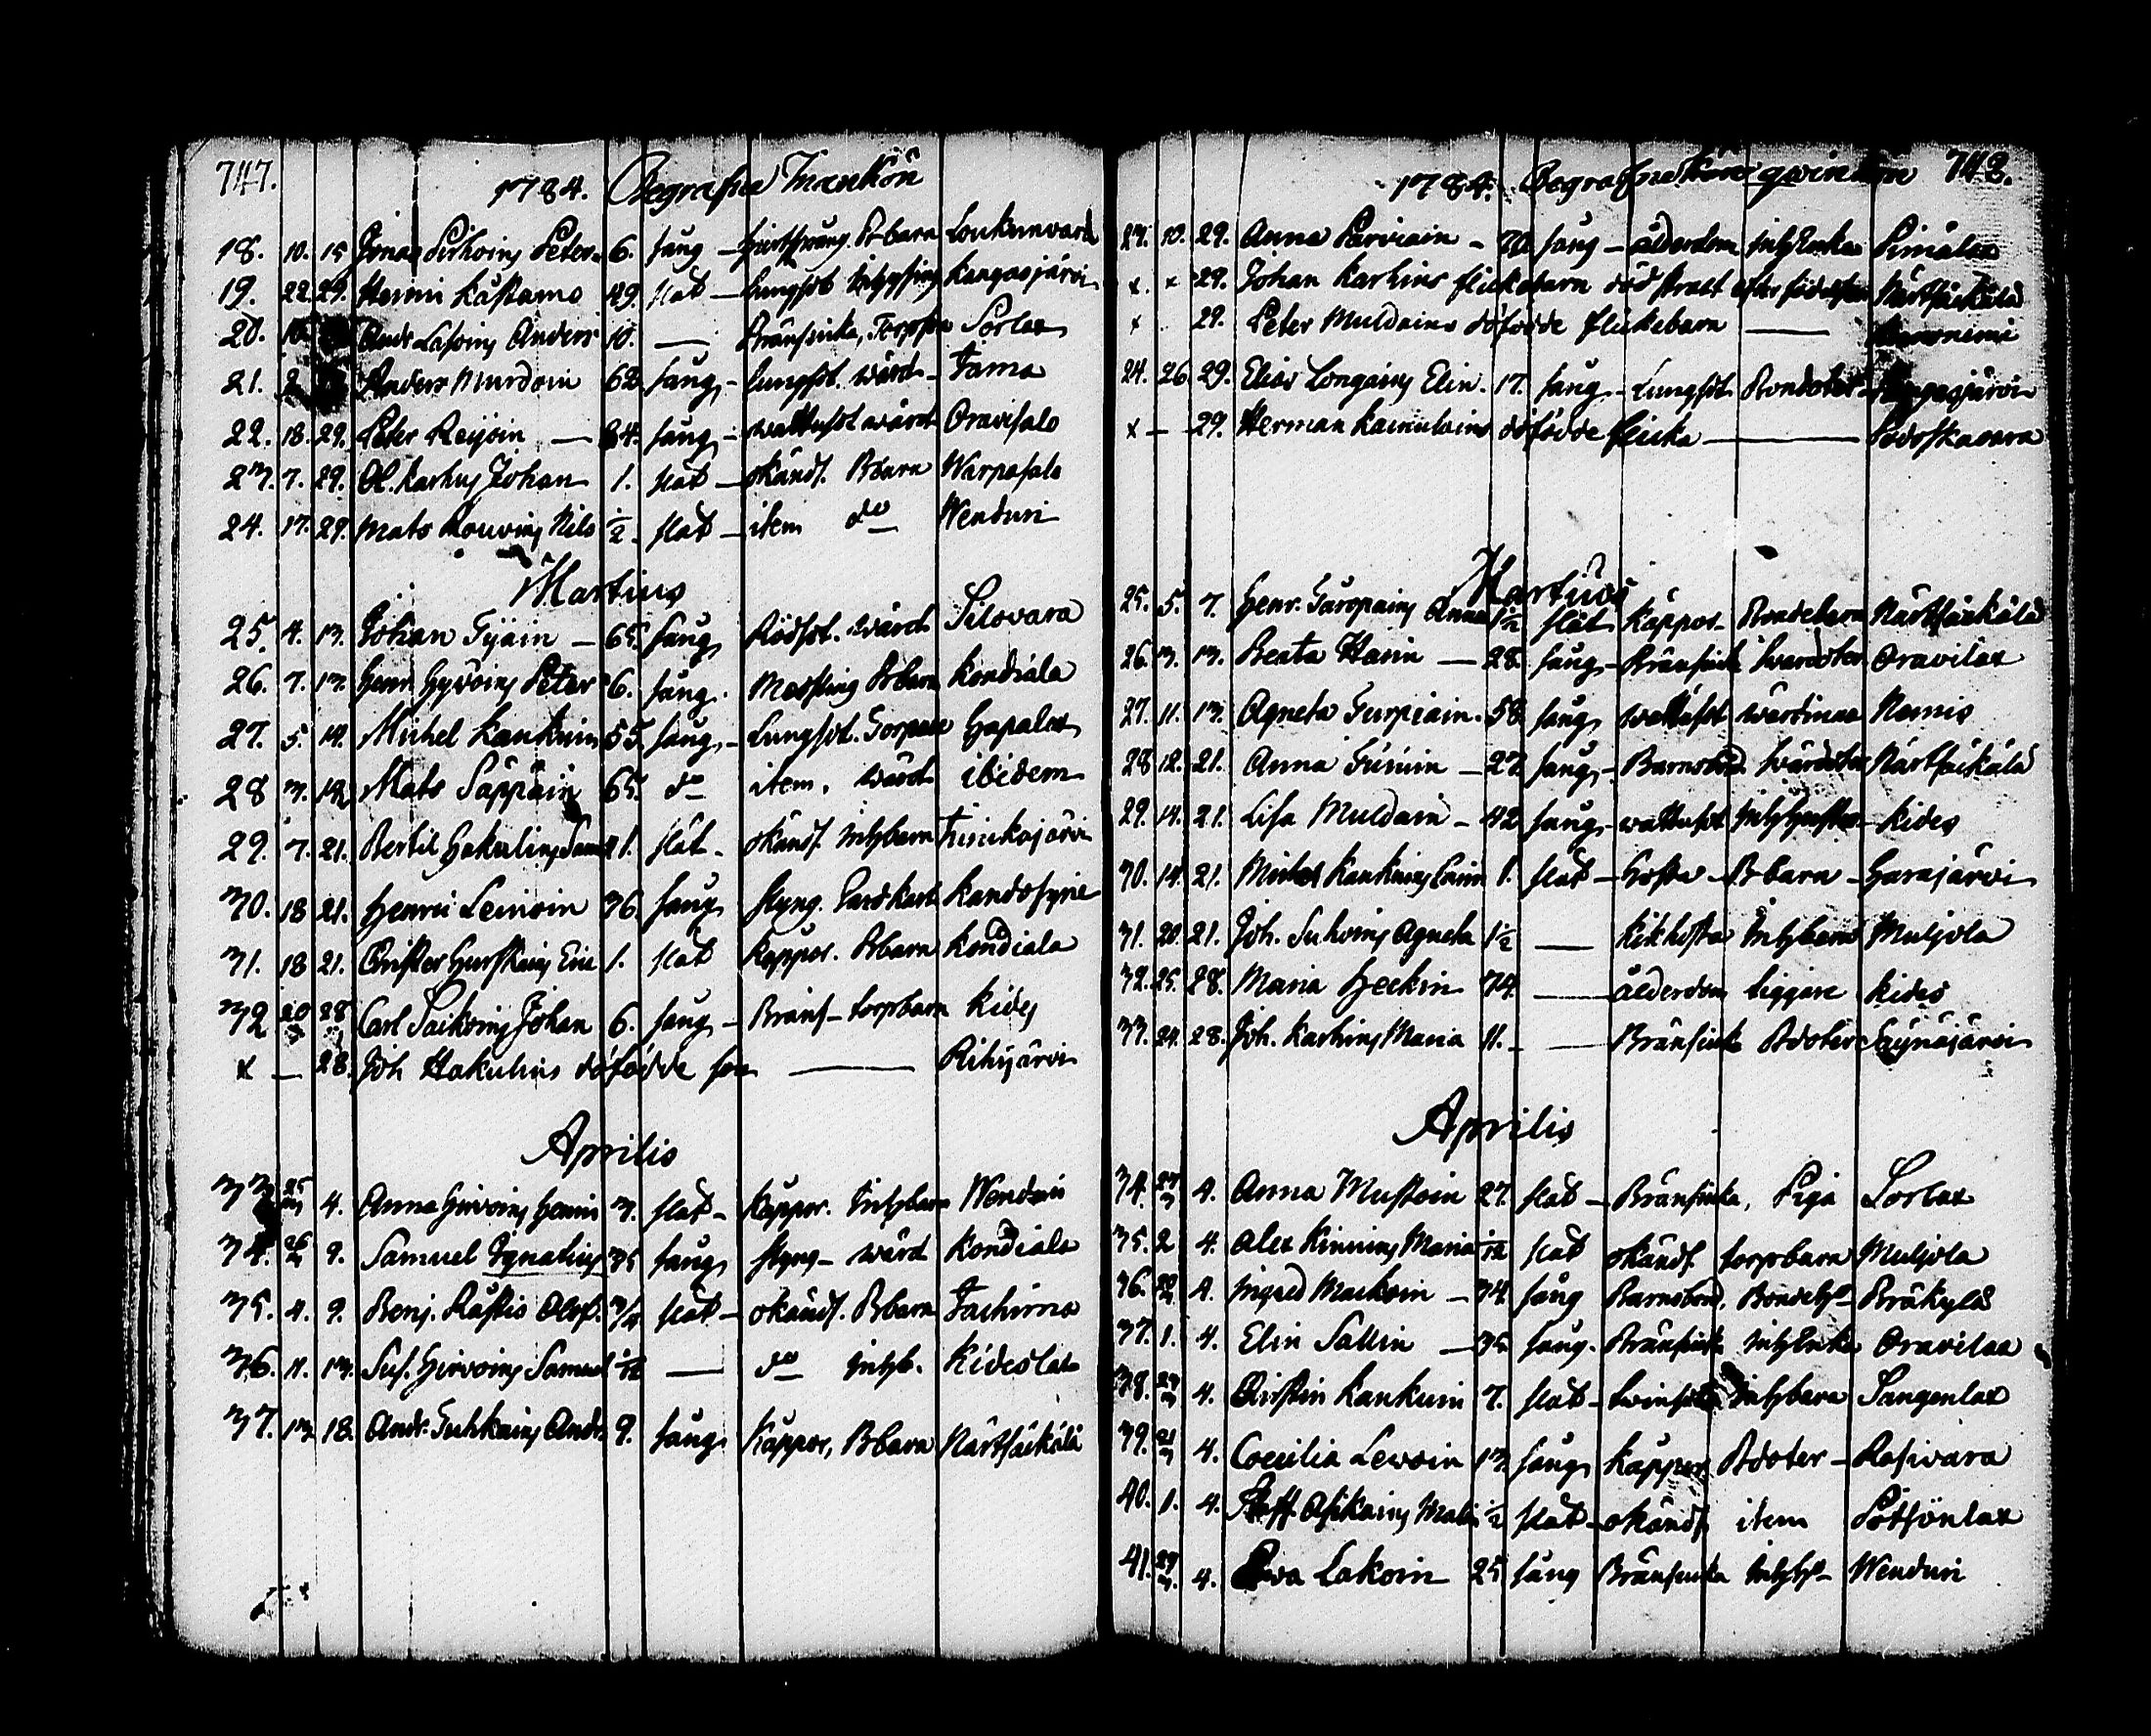 747.
1784. Begrafne Mankön
18. 10. 15 Jonas Sirkoins Peter 6. säng - Pr barn Loukunvara
19. 22. 29. Henric Kästamo 49. slät - lungsot Inhysing Kangasjärvi
20. 10 Andr. Lasoins Anders 10. — Bränsiuka, Torppar Sorlax
21. 2 Anders Murdoin 62. säng - lungsot. wärd - Jama
22. 18. 29. Peter Reijoin — 64. säng - wattusot wärd Oravisalo
23. 7. 29. Ol. Karhus Johan 1. slät - okänds. Bbarn Warpasalo
24. 17. 29. Mats Kouvins Nils 1/2. slät - item do Wenduri
Martius
25. 4. 13. Johan Tijäin — 65. säng Rödsot. wärd Silovara
26. 7. 13. Henr. Hyvöins Peter 6. säng. Messling Bbarn Kondiala
27. 5. 14. Michel Kankuin 55. säng - Lungsot. Torpare Hapalax
28 3. 14 Mats Säppäin 65. do item. wärd ibidem
29. 7. 21. Bertil Hakulins Sam 21. slät - okänds. Inhbarn Kinikajärvi
30. 18 21. Henric Leinoin 36. säng styng. Kandosyrie
31. 18 21. Christer Hurskains Eric 1. slät Koppor. Bbarn Kondiala
32 20/3 28 Carl Saikoins Johan 6. säng - Bräns - torpbarn Kides
x — 28. Joh Hakulins dödfödde son — Rihijärvi
Aprilis
33 25/3 4. Anna Hirvoins Henric 3. slät - Koppor. Inhbarn Wenduri
34. 26/3 9. Samuel Ignatius 35 säng styng - wärd Kondiala
35. 4. 9. Benj. Rästis Olof. 3/4 slät - okänds. Bbarn Jachima
36. 11. 13. Sus. Hirvoins Samuel 1/12 — do Inhb. Kideslax
37. 13 18. Andr. Tuhkains Andr. 9. säng Kåppor, Bbarn Närtsäkälä
1784. Begrafne qwinkön 748.
23. 10. 29. Anna Parviain - 70 säng - ålderdom Inhenka Pimälax
x. x 29. Johan Karhins flickebarn död strax efter födelsen Närtsäkälä
x 29. Peter Muldains dödfödde flickebarn —
24. 26 29. Elias Longains Elin. 17. säng - Lungsot Bondoter Kangasjärvi
x — 29. Herman Kainulains dödfödde flicka — Podoskavara
Martius
25. 5. 7. Henr. Turpains Anna 1 1/2 slät Kåppor. Bondebarn Närtsäkälä
26. 3. 13. Beata Harin — 28. säng - Bränsiuk Swärdoter Oravilax
27. 11. 13. Agneta Turpiain. 58 säng wattusot wärdinna Nemis
28 12. 21. Anna Timin — 27 säng - Barnsbörd Swärdoter Närtsäkälä
29. 14. 21. Lisa Muldain - 42 säng - wattusot Inhhustru - Kides
30. 14. 21. Michel Kankuins Carin 1. slät - Hosta - Bbarn - Harajärvi
31. 20. 21. Joh. Suhoins Agneta 1 1/2 — Kikhosta Inhbarn Muljola
32. 25. 28. Maria Heckin 74. — ålderdom tiggare Kides
33. 24. 28. Joh. Karhins Maria 11. — Bränsiuk Bdoter Säynäjärvi
Aprilis
34. 27/3 4. Anna Mustoin 27. slät - Bränsiuka, Piga Sorlax
35. 2 4. Alex Kinnins Maria 1/12 slät okänds torpbarn Muljola
36. 4. Ingred Maikoin — 34 säng Barnsbörd. Bondehu Bräkylä
37. 1. 4. Elin Sallin — 35 säng. Bränsiuk Inhenka Oravilax
38. 27/3 4. Christin Kankuin 7. slät - twinsot Inhbarn Sangenlax
39. 21/3 4. Coecilia Levoin 13. säng Kåppor Bdoter - Rasivara
40. 1. 4. Staff. Asikains Malin 1/2 slät - okänds item Potsönlax
41. 27/3. 4. Ewa Lakoin 25 säng Bränsiuka Inhhu - Wenduri